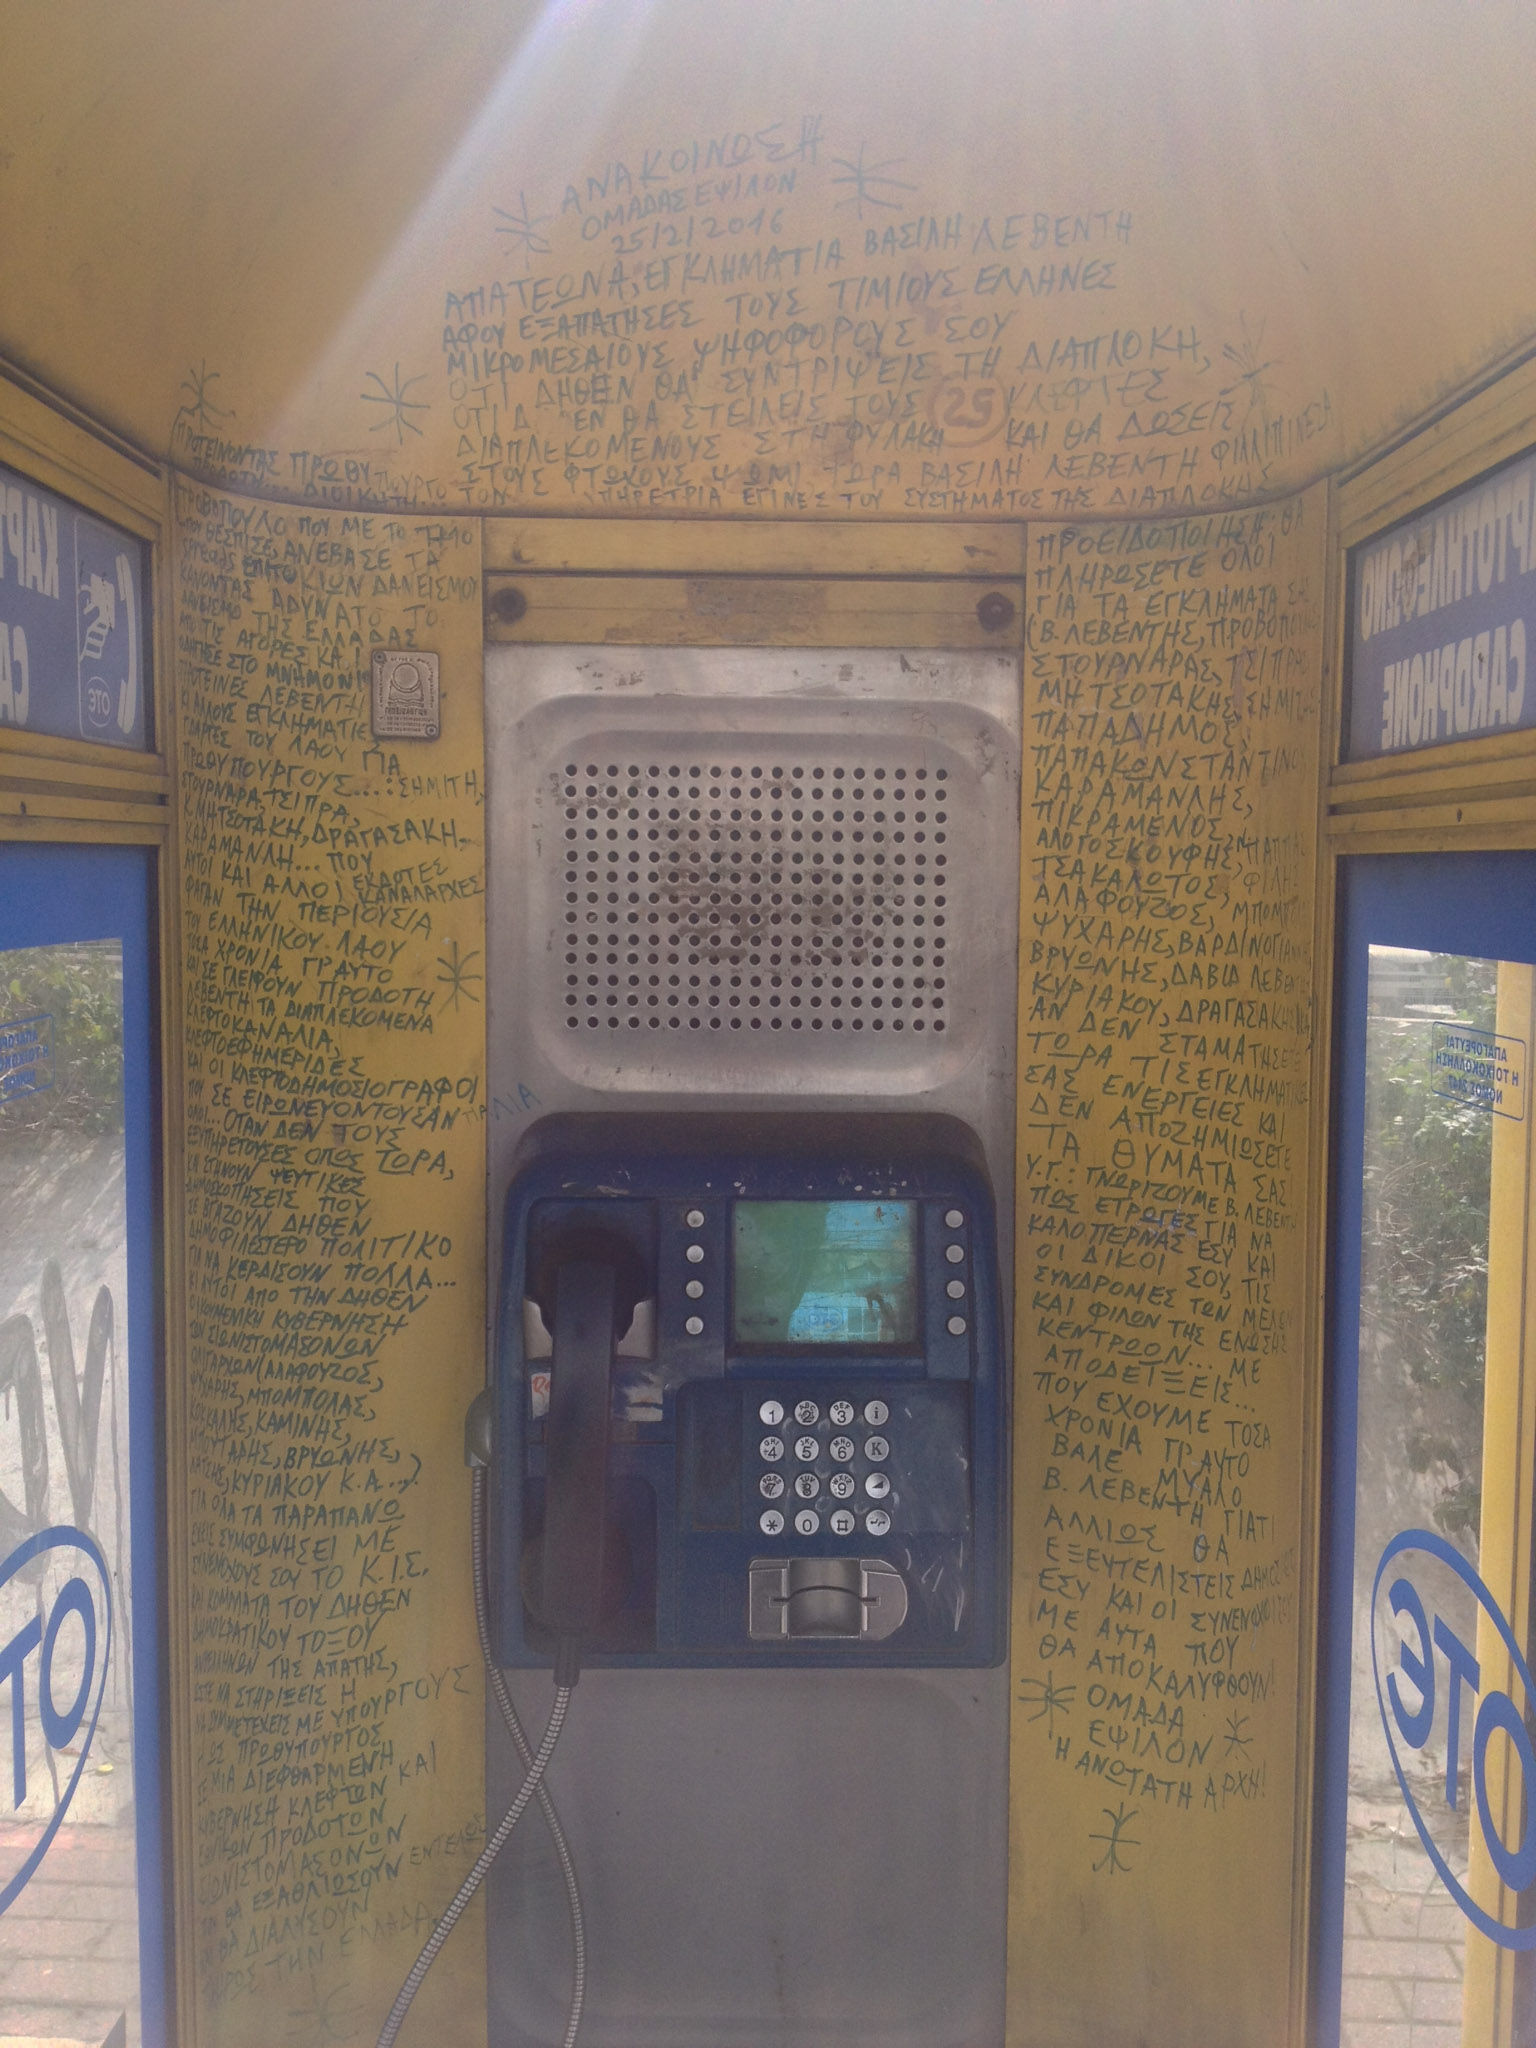 ΑΝΑΚΟΙΝΩΣΗ
ΟΜΑΔΑΣ ΕΨΙΛΟΝ
25/2/2016
ΑΠΑΤΕΩΝΑ, ΕΓΚΛΗΜΑΤΙΑ ΒΑΣΙΛΗ ΛΕΒΕΝΤΗ
ΑΦΟΥ ΕΞΑΠΑΤΗΣΕΣ ΤΟΥΣ ΤΙΜΙΟΥΣ ΕΛΛΗΝΕΣ
ΜΙΚΡΟΜΕΣΑΙΟΥΣ ΨΗΦΟΦΟΡΟΥΣ ΣΟΥ
ΟΤΙ ΔΗΘΕΝ ΘΑ ΣΥΝΤΡΙΨΕΙΣ ΤΗ ΔΙΑΠΛΟΚΗ,
ΟΤΙ Δ ΕΝ ΘΑ ΣΤΕΙΛΕΙΣ ΤΟΥΣ 25 ΚΛΕΦΤΕΣ
ΔΙΑΠΛΕΚΟΜΕΝΟΥΣ ΣΤΗ ΦΥΛΑΚΗ ΚΑΙ ΘΑ ΔΩΣΕΙΣ
ΣΤΟΥΣ ΦΤΩΧΟΥΣ ΨΩΜΙ ΤΩΡΑ ΒΑΣΙΛΗ ΛΕΒΕΝΤΗ ΦΙΛΙΠΙΝΕΖΑ
ΥΠΗΡΕΤΡΙΑ ΕΓΙΝΕΣ ΤΟΥ ΣΥΣΤΗΜΑΤΟΣ ΤΗΣ ΔΙΑΠΛΟΚΗΣ
ΠΡΟΤΕΙΝΟΝΤΑΣ ΠΡΩΘΥΠΟΥΡΓΟ ΤΟΝ
ΠΡΟΔΟΤΗ... ΔΙΟΙΚΗΤΗ...
ΠΡΟΒΟΠΟΥΛΟ ΠΟΥ ΜΕ ΤΟ Τ+10
ΠΟΥ ΘΕΣΠΙΣΕ, ΑΝΕΒΑΣΕ ΤΑ
SPREADS ΕΠΙΤΟΚΙΩΝ ΔΑΝΕΙΣΜΟΥ
ΚΑΝΟΝΤΑΣ ΑΔΥΝΑΤΟ ΤΟ
ΔΑΝΕΙΣΜΟ ΤΗΣ ΕΛΛΑΔΑΣ
ΑΠΟ ΤΙΣ ΑΓΟΡΕΣ ΚΑΙ
ΟΔΗΓΗΣΕ ΣΤΟ ΜΝΗΜΟΝΙ
ΠΡΟΤΕΙΝΕΣ ΛΕΒΕΝΤΗ
ΚΙ ΑΛΛΟΥΣ ΕΓΚΛΗΜΑΤΙΕΣ
ΤΟΥ ΛΑΟΥ ΓΙΑ
ΠΡΩΘΥΠΟΥΡΓΟΥΣ...: ΣΗΜΙΤΗ,
ΣΤΟΥΡΝΑΡΑ, ΤΣΙΠΡΑ,
Κ. ΜΗΤΣΟΤΑΚΗ, ΔΡΑΓΑΣΑΚΗ...
ΚΑΡΑΜΑΝΛΗ... ΠΟΥ
ΑΥΤΟΙ ΚΑΙ ΑΛΛΟΙ ΕΚΔΟΤΕΣ
ΚΑΝΑΛΑΡΧΕΣ
ΦΑΓΑΝ ΤΗΝ ΠΕΡΙΟΥΣΙΑ
ΤΟΥ ΕΛΛΗΝΙΚΟΥ ΛΑΟΥ
ΤΟΣΑ ΧΡΟΝΙΑ ΓΙ'ΑΥΤΟ
ΚΑΙ ΣΕ ΓΛΕΙΦΟΥΝ ΠΡΟΔΟΤΗ
ΛΕΒΕΝΤΗ ΤΑ ΔΙΑΠΛΕΚΟΜΕΝΑ
ΚΛΕΦΤΟΚΑΝΑΛΙΑ,
ΚΛΕΦΤΟΕΦΗΜΕΡΙΔΕΣ
ΚΑΙ ΟΙ ΚΛΕΦΤΟΔΗΜΟΣΙΟΓΡΑΦΟΙ
ΠΟΥ ΣΕ ΕΙΡΩΝΕΥΟΝΤΟΥΣΑΝ ΠΑΛΙΑ
ΟΛΟΙ... ΟΤΑΝ ΔΕΝ ΤΟΥΣ
ΕΞΥΠΗΡΕΤΟΥΣΕΣ ΟΠΩΣ ΤΩΡΑ,
ΚΑΙ ΣΤΗΝΟΥΝ ΨΕΥΤΙΚΕΣ
ΔΗΜΟΣΚΟΠΗΣΕΙΣ ΠΟΥ
ΣΕ ΒΓΑΖΟΥΝ ΔΗΘΕΝ
ΔΗΜΟΦΙΛΕΣΤΕΡΟ ΠΟΛΙΤΙΚΟ
ΓΙΑ ΝΑ ΚΕΡΔΙΣΟΥΝ ΠΟΛΛΑ...
ΚΙ ΑΥΤΟΙ ΑΠΟ ΤΗΝ ΔΗΘΕΝ
ΟΙΚΟΥΜΕΝΙΚΗ ΚΥΒΕΡΝΗΣΗ
ΤΩΝ ΣΙΩΝΙΣΤΟΜΑΣΟΝΩΝ
ΟΛΙΓΑΡΧΩΝ (ΑΛΑΦΟΥΖΟΣ,
ΨΥΧΑΡΗΣ, ΜΠΟΜΠΟΛΑΣ,
ΚΟΚΚΑΛΗΣ, ΚΑΜΙΝΗΣ,
ΜΠΟΥΤΑΡΗΣ, ΒΡΥΩΝΗΣ,
ΛΑΤΣΗΣ, ΚΥΡΙΑΚΟΥ Κ.Α...)
ΓΙΑ ΟΛΑ ΤΑ ΠΑΡΑΠΑΝΩ
ΕΧΕΙΣ ΣΥΜΦΩΝΗΣΕΙ ΜΕ
ΣΥΝΕΝΟΧΟΥΣ ΣΟΥ ΤΟ Κ.Ι.Σ.
ΚΑΙ ΚΟΜΜΑΤΑ ΤΟΥ ΔΗΘΕΝ
ΔΗΜΟΚΡΑΤΙΚΟΥ ΤΟΞΟΥ
ΑΝΘΕΛΛΗΝΩΝ ΤΗΣ ΑΠΑΤΗΣ,
ΩΣΤΕ ΝΑ ΣΤΗΡΙΞΕΙΣ Η
ΝΑ ΣΥΜΜΕΤΕΧΕΙΣ ΜΕ ΥΠΟΥΡΓΟΥΣ
Η ΩΣ ΠΡΩΘΥΠΟΥΡΓΟΣ
ΣΕ ΜΙΑ ΔΙΕΦΘΑΡΜΕΝΗ
ΚΥΒΕΡΝΗΣΗ ΚΛΕΦΤΩΝ ΚΑΙ
ΕΘΝΙΚΩΝ ΠΡΟΔΟΤΩΝ
ΣΙΩΝΙΣΤΟΜΑΣΟΝΩΝ
ΠΟΥ ΘΑ ΕΞΑΘΛΙΩΣΟΥΝ ΕΝΤΕΛΩΣ
ΚΑΙ ΘΑ ΔΙΑΛΥΣΟΥΝ
ΤΗΝ ΕΛΛΑΔΑ
ΠΡΟΕΙΔΟΠΟΙΗΣΗ: ΘΑ
ΠΛΗΡΩΣΕΤΕ ΟΛΟΙ
ΓΙΑ ΤΑ ΕΓΚΛΗΜΑΤΑ ΣΑΣ
(Β. ΛΕΒΕΝΤΗΣ, ΠΡΟΒΟΠΟΥΛΟΣ
ΣΤΟΥΡΝΑΡΑΣ, ΤΣΙΠΡΑΣ
ΜΗΤΣΟΤΑΚΗΣ, ΣΗΜΙΤΗΣ
ΠΑΠΑΔΗΜΟΣ,
ΠΑΠΑΚΩΝΣΤΑΝΤΙΝΟΥ
ΚΑΡΑΜΑΝΛΗΣ,
ΠΙΚΡΑΜΕΝΟΣ,
ΑΛΟΓΟΣΚΟΥΦΗΣ, ΠΑΠΠΑΣ
ΤΣΑΚΑΛΩΤΟΣ, ΦΙΛΗΣ
ΑΛΑΦΟΥΖΟΣ, ΜΠΟΜΠΟΛΑΣ
ΨΥΧΑΡΗΣ, ΒΑΡΔΙΝΟΓΙΑΝΝΗΣ
ΒΡΥΩΝΗΣ, ΔΑΒΙΔ ΛΕΒΕΝΤ
ΚΥΡΙΑΚΟΥ, ΔΡΑΓΑΣΑΚΗΣ
ΑΝ ΔΕΝ ΣΤΑΜΑΤΗΣΕΤΕ
ΤΩΡΑ ΤΙΣ ΕΓΚΛΗΜΑΤΙΚΕΣ
ΣΑΣ ΕΝΕΡΓΕΙΕΣ ΚΑΙ
ΔΕΝ ΑΠΟΖΗΜΙΩΣΕΤΕ
ΤΑ ΘΥΜΑΤΑ ΣΑΣ!
Υ.Γ.: ΓΝΩΡΙΖΟΥΜΕ Β. ΛΕΒΕΝΤΗ
ΠΩΣ ΕΤΡΩΓΕΣ ΓΙΑ ΝΑ
ΚΑΛΟΠΕΡΝΑΣ ΕΣΥ ΚΑΙ
ΟΙ ΔΙΚΟΙ ΣΟΥ, ΤΙΣ
ΣΥΝΔΡΟΜΕΣ ΤΩΝ ΜΕΛΩΝ
ΚΑΙ ΦΙΛΩΝ ΤΗΣ ΕΝΩΣΗΣ
ΚΕΝΤΡΩΩΝ... ΜΕ
ΑΠΟΔΕΙΞΕΙΣ...
ΠΟΥ ΕΧΟΥΜΕ ΤΟΣΑ
ΧΡΟΝΙΑ ΓΙ'ΑΥΤΟ
ΒΑΛΕ ΜΥΑΛΟ
Β. ΛΕΒΕΝΤΗ ΓΙΑΤΙ
ΑΛΛΙΩΣ ΘΑ
ΕΞΕΥΤΕΛΙΣΤΕΙΣ ΔΗΜΟΣΙΩΣ
ΕΣΥ ΚΑΙ ΟΙ ΣΥΝΕΝΟΧΟΙ ΣΟΥ
ΜΕ ΑΥΤΑ ΠΟΥ
ΘΑ ΑΠΟΚΑΛΥΦΘΟΥΝ!
ΟΜΑΔΑ
ΕΨΙΛΟΝ
Η ΑΝΩΤΑΤΗ ΑΡΧΗ!
ΚΑΡΤ
CA
ΟΤΕ
ΟΤ
ΡΤΟΤΗΛΕΦΩΝΟ
CARDPHONE
ΑΠΑΓΟΡΕΥΕΤΑΙ
Η ΤΟΙΧΟΚΟΛΛΗΣΗ
ΝΟΜΟΣ
ΟΤΕ
1 ABC 2 DEF 3 i
GHI 4 JKL 5 MNO 6 K
PQRS 7 TUV 8 WXYZ 9
* 0 #